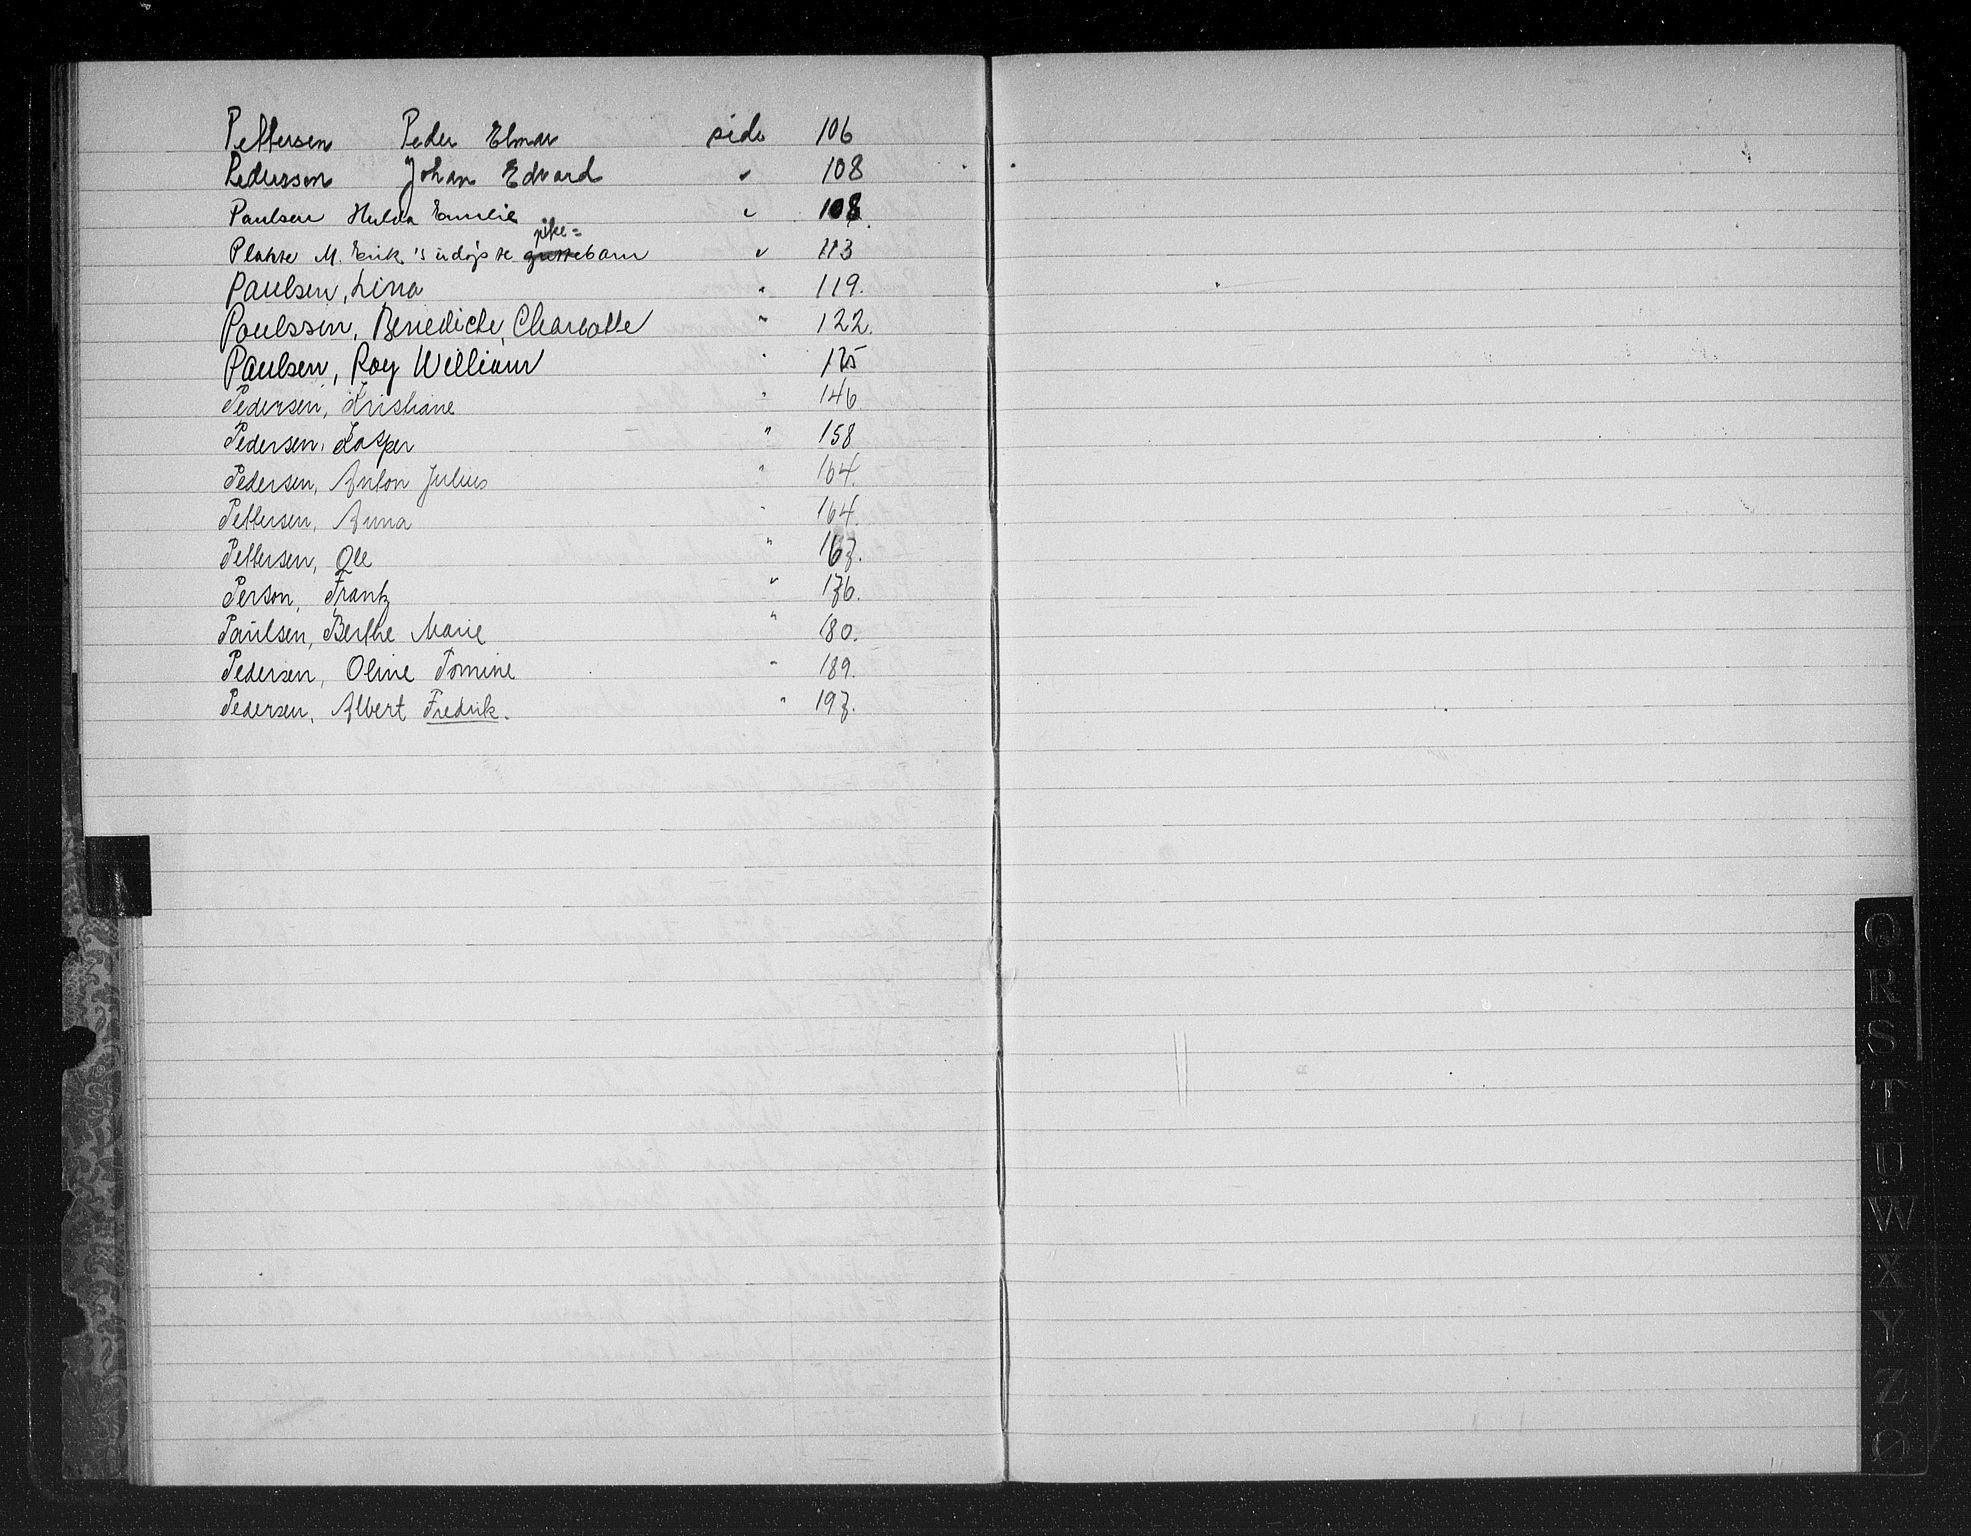 Pettersen Peder Elmar side 106
Pederssen Johan Edvard " 108
Paulsen Hulda Emelie " 108.
pike=
M. Erik's udøpte guttebarn " 113
Paulsen, Lina " 119.
Poulssen, Benedicte, Charlotte " 122.
Paulsen, Roy William "
Pedersen, Kristiane " 146.
Pedersen, Kasper " 158
Pedersen, Anton Julius " 164.
Pettersen, Anna " 164.
Pettersen, Ole " 167.
Person, Frank " 176.
Paulsen, Berthe Marie " 180.
Pedersen, Oline Tomine " 189.
Pedersen, Albert Fredrik. " 197.
Q
R
S
T
U
W
X
Y
Z
Ø